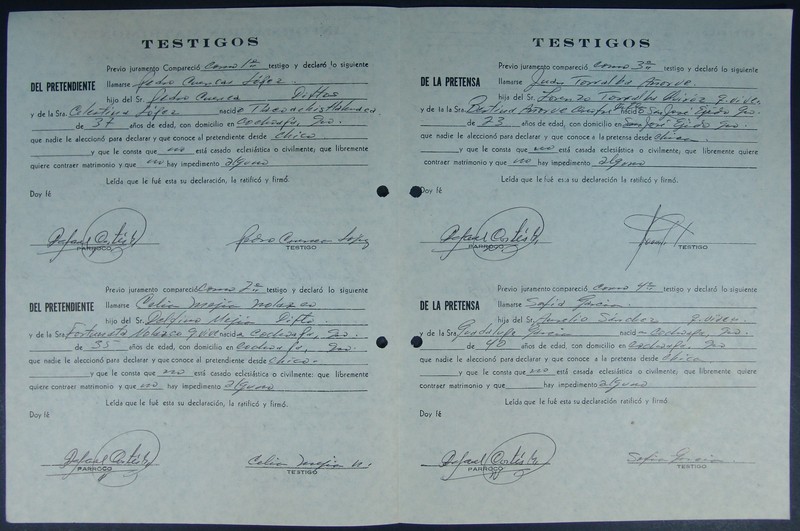 TESTIGOS
Previo juramento Compareció como 1er testigo y declaró lo siguiente
DEL PRETENDIENTE llamarse Pedro Cuevas López
hijo del Sr. Pedro Cuevas Difto
y de la Sra. Celestina López nacid
de 37 años de edad, con domicilio en
que nadie le aleccionó para declarar y que conoce al pretendiente desde Chico
y que le consta que no está casado eclesiástica o civilmente; que libremente
quiere contraer matrimonio y que no hay impedimento alguno
Leída que le fué esta su declaración, la ratificó y firmó.
Doy fé
Rafael Cortés
PARROCO
Pedro Cuevas López
TESTIGO
Previo juramento compareció como 2o testigo y declaró lo siguiente
DEL PRETENDIENTE llamarse Celia Mejía
hijo del Sr. Delfino Mejía Difto
y de la Sra. Fortunata
de 35 años de edad, con domicilio en
que nadie le aleccionó para declarar y que conoce al pretendiente desde Chico
y que le consta que no está casado eclesiástica o civilmente: que libremente
quiere contraer matrimonio y que no hay impedimento alguno
Leída que le fué esta su declaración, la ratificó y firmó.
Doy fé
Rafael Cortés
PARROCO
Celia Mejía
TESTIGO
TESTIGOS
Previo juramento compareció como 3er testigo y declaró lo siguiente
DE LA PRETENSA llamarse Juan Torralba Añorve
hija del Sr. Lorenzo Torralba q. vive
y de la Sra. Añorve San José
de 23 años de edad, con domicilio en San José
que nadie le aleccionó para declarar y que conoce a la pretensa desde Chica
y que le consta que no está casada eclesiástica o civilmente; que libremente
quiere contraer matrimonio y que no hay impedimento alguno
Leída que le fué esta su declaración, la ratificó y firmó.
Doy fé
Rafael Cortés
PARROCO
TESTIGO
Previo juramento compareció como 4to testigo y declaró lo siguiente
DE LA PRETENSA llamarse Sofía García
hija del Sr. Aurelio Sánchez q. vive
y de la Sra. Guadalupe García nacid
de 40 años de edad, con domicilio en
que nadie le aleccionó para declarar y que conoce a la pretensa desde Chica
y que le consta que no está casada eclesiástica o civilmente; que libremente
quiere contraer matrimonio y que hay impedimento alguno
Leída que le fué esta su declaración ratificó y firmó.
Doy fé
Rafael Cortés
PARROCO
Sofía García
TESTIGO